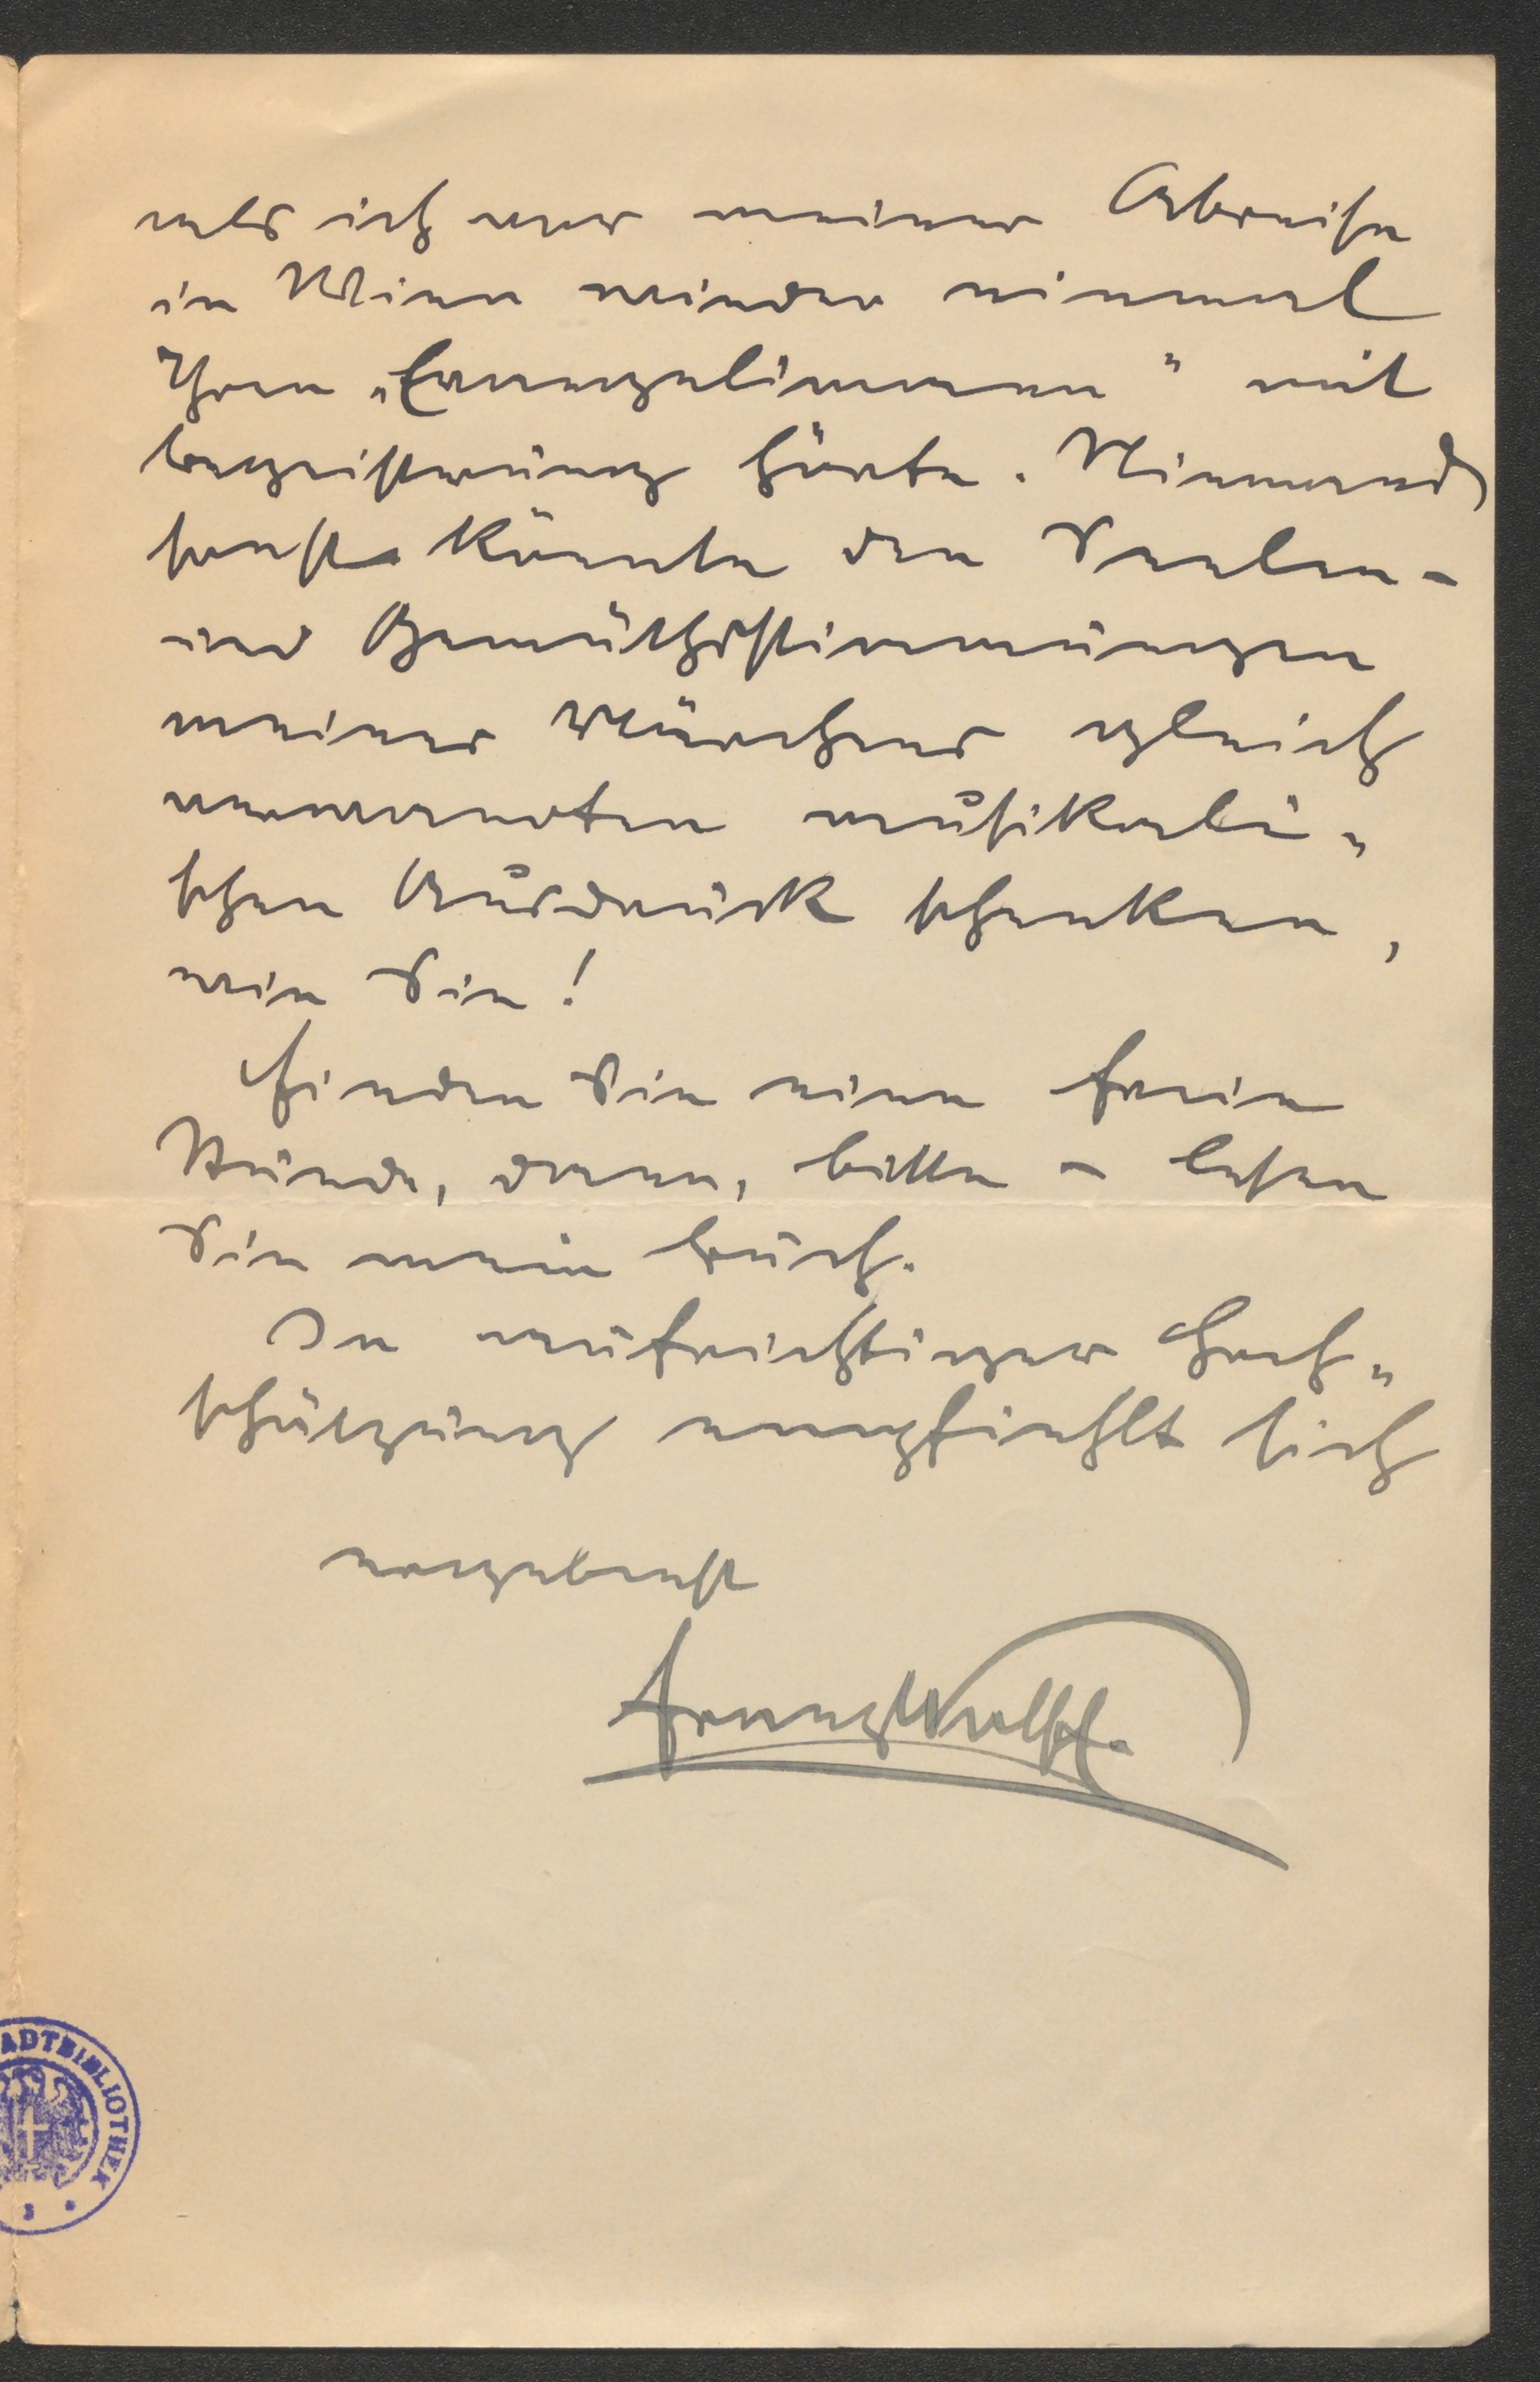 als ich vor meiner Abreise
in Wien wieder einmal
Ihren „Evangelimann" mit
Begeisterung hörte. Niemand
sonst könnte den Seelen-
und Gemüthsstimmungen
meines Märchens gleich
verwandten musikali„
schen Ausdruck schenken,
wie Sie!
Finden Sie eine freie
Stunde, dann, bitte – lesen
Sie mein Buch.
In aufrichtiger Hoch„
schätzung empfiehlt sich
ergebenst
Franz Wolff.
ADTBIBLIOTHEK